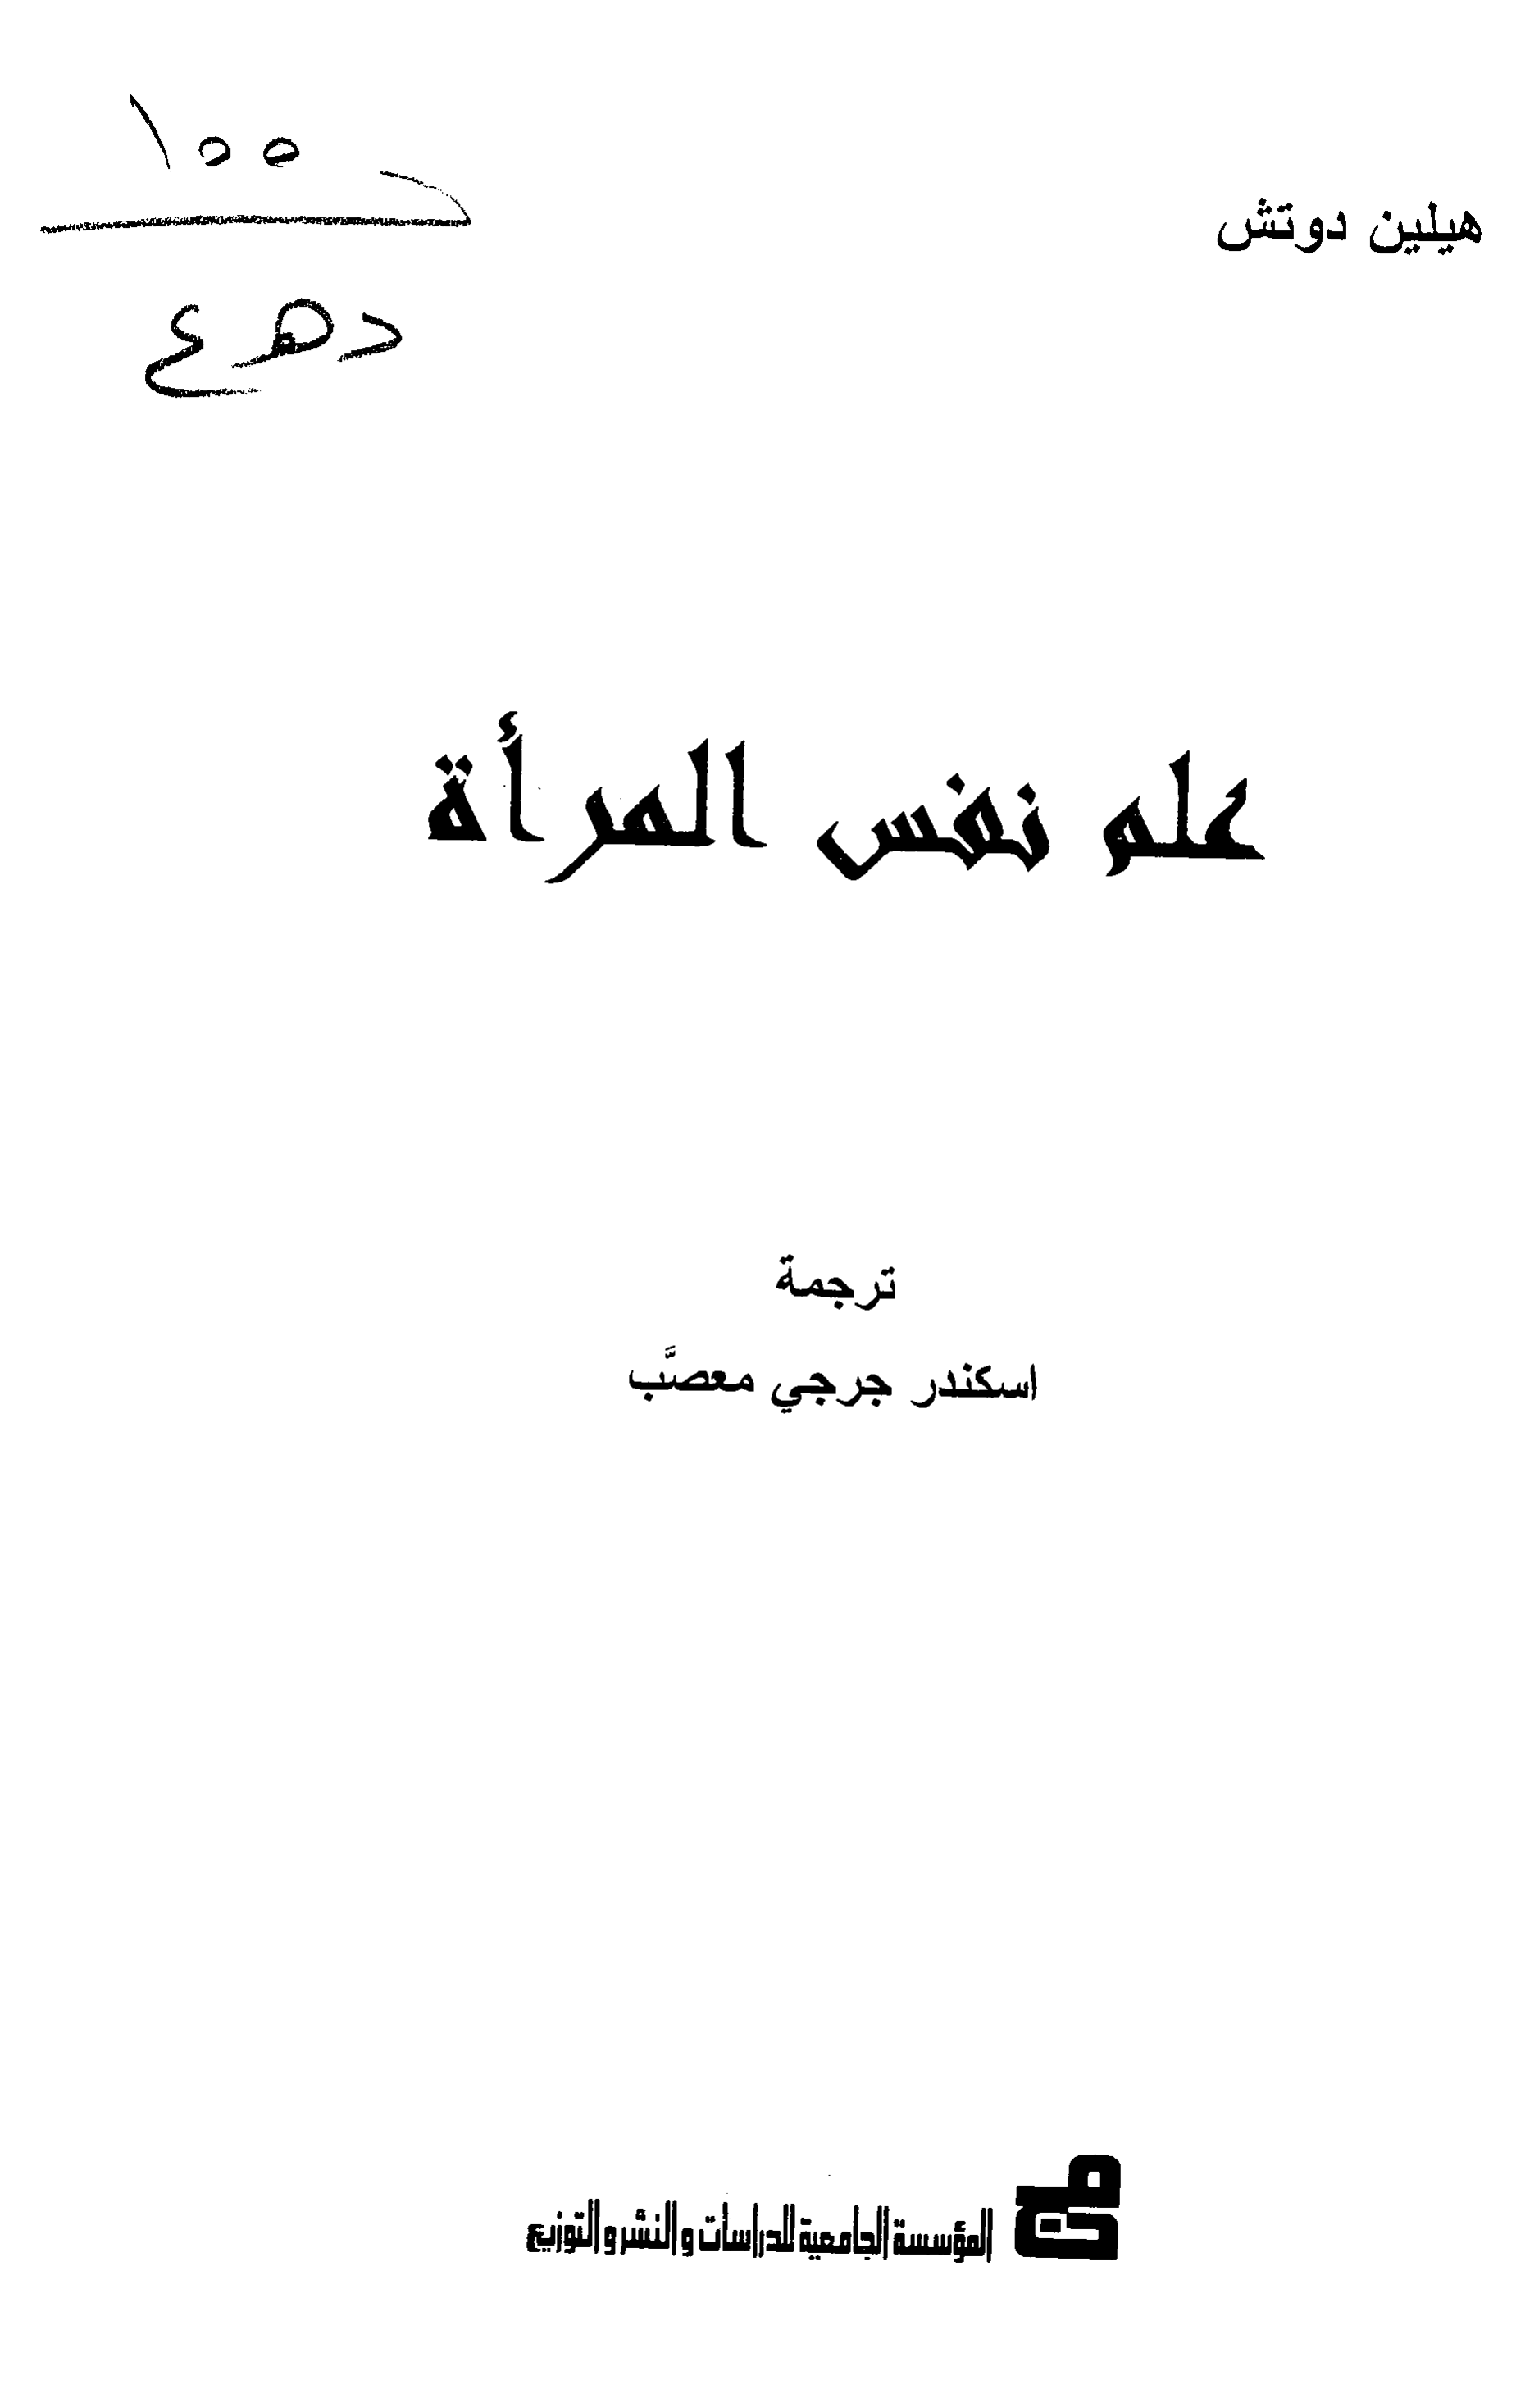 هيلين دوتش
١٥٥
د هـ ع
علم نفس المرأة
ترجمة
اسكندر جرجي معصَّب
المؤسسة الجامعية للدراسات و النشر و التوزيع